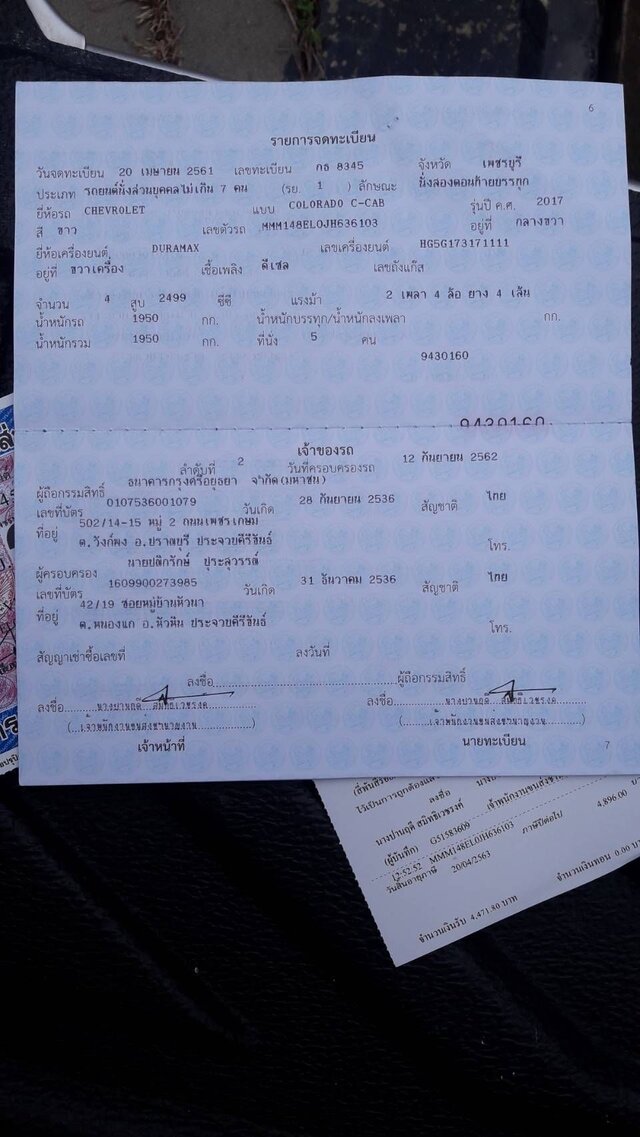 6
รายการจดทะเบียน
วันจดทะเบียน 20 เมษายน 2561 เลขทะเบียน กธ 8345 จังหวัด เพชรบุรี
ประเภท รถยนต์นั่งส่วนบุคคลไม่เกิน 7 คน (รย. 1 ) ลักษณะ นั่งสองตอนท้ายบรรทุก
ยี่ห้อรถ CHEVROLET แบบ COLORADO C-CAB รุ่นปี ค.ศ. 2017
สี ขาว เลขตัวรถ MMM148EL0JH636103 อยู่ที่ กลางขวา
ยี่ห้อเครื่องยนต์ DURAMAX เลขเครื่องยนต์ HG5G173171111
อยู่ที่ ขวาเครื่อง เชื้อเพลิง ดีเซล เลขถังแก๊ส
จำนวน 4 สูบ 2499 ซีซี แรงม้า 2 เพลา 4 ล้อ ยาง 4 เส้น
น้ำหนักรถ 1950 กก. น้ำหนักบรรทุก/น้ำหนักลงเพลา กก.
น้ำหนักรวม 1950 กก. ที่นั่ง 5 คน
9430160
9430160
เจ้าของรถ
ลำดับที่ 2 วันที่ครอบครองรถ 12 กันยายน 2562
ผู้ถือกรรมสิทธิ์ ธนาคารกรุงศรีอยุธยา จำกัด(มหาชน)
เลขที่บัตร 0107536001079 วันเกิด 28 กันยายน 2536 สัญชาติ ไทย
ที่อยู่ 502/14-15 หมู่ 2 ถนนเพชรเกษม
ต.วังก์พง อ.ปราณบุรี ประจวบคีรีขันธ์ โทร.
ผู้ครอบครอง นายปฬิกรักษ์ ประสุวรรณ์
เลขที่บัตร 1609900273985 วันเกิด 31 ธันวาคม 2536 สัญชาติ ไทย
ที่อยู่ 42/19 ซอยหมู่บ้านหัวนา
ต.หนองแก อ.หัวหิน ประจวบคีรีขันธ์ โทร.
สัญญาเช่าซื้อเลขที่ ลงวันที่
ลงชื่อ ผู้ถือกรรมสิทธิ์
ลงชื่อ นางปานฤดี สมิทธิเวชรงค์ ลงชื่อ นางปานฤดี สมิทธิเวชรงค์
(เจ้าพนักงานขนส่งชำนาญงาน) (เจ้าพนักงานขนส่งชำนาญงาน)
เจ้าหน้าที่ นายทะเบียน
7
ไว้เป็นการถูกต้องแล้ว
ลงชื่อ
นางปานฤดี สมิทธิเวชรงค์ เจ้าพนักงานขนส่งชำ
(ผู้บันทึก) G51583609
12:52:52 MMM148EL0JH636103 ภาษีปีต่อไป 4,896.00
วันสิ้นอายุภาษี 20/04/2563
จำนวนเงินรับ 4,471.80 บาท จำนวนเงินทอน 0.00 บาท